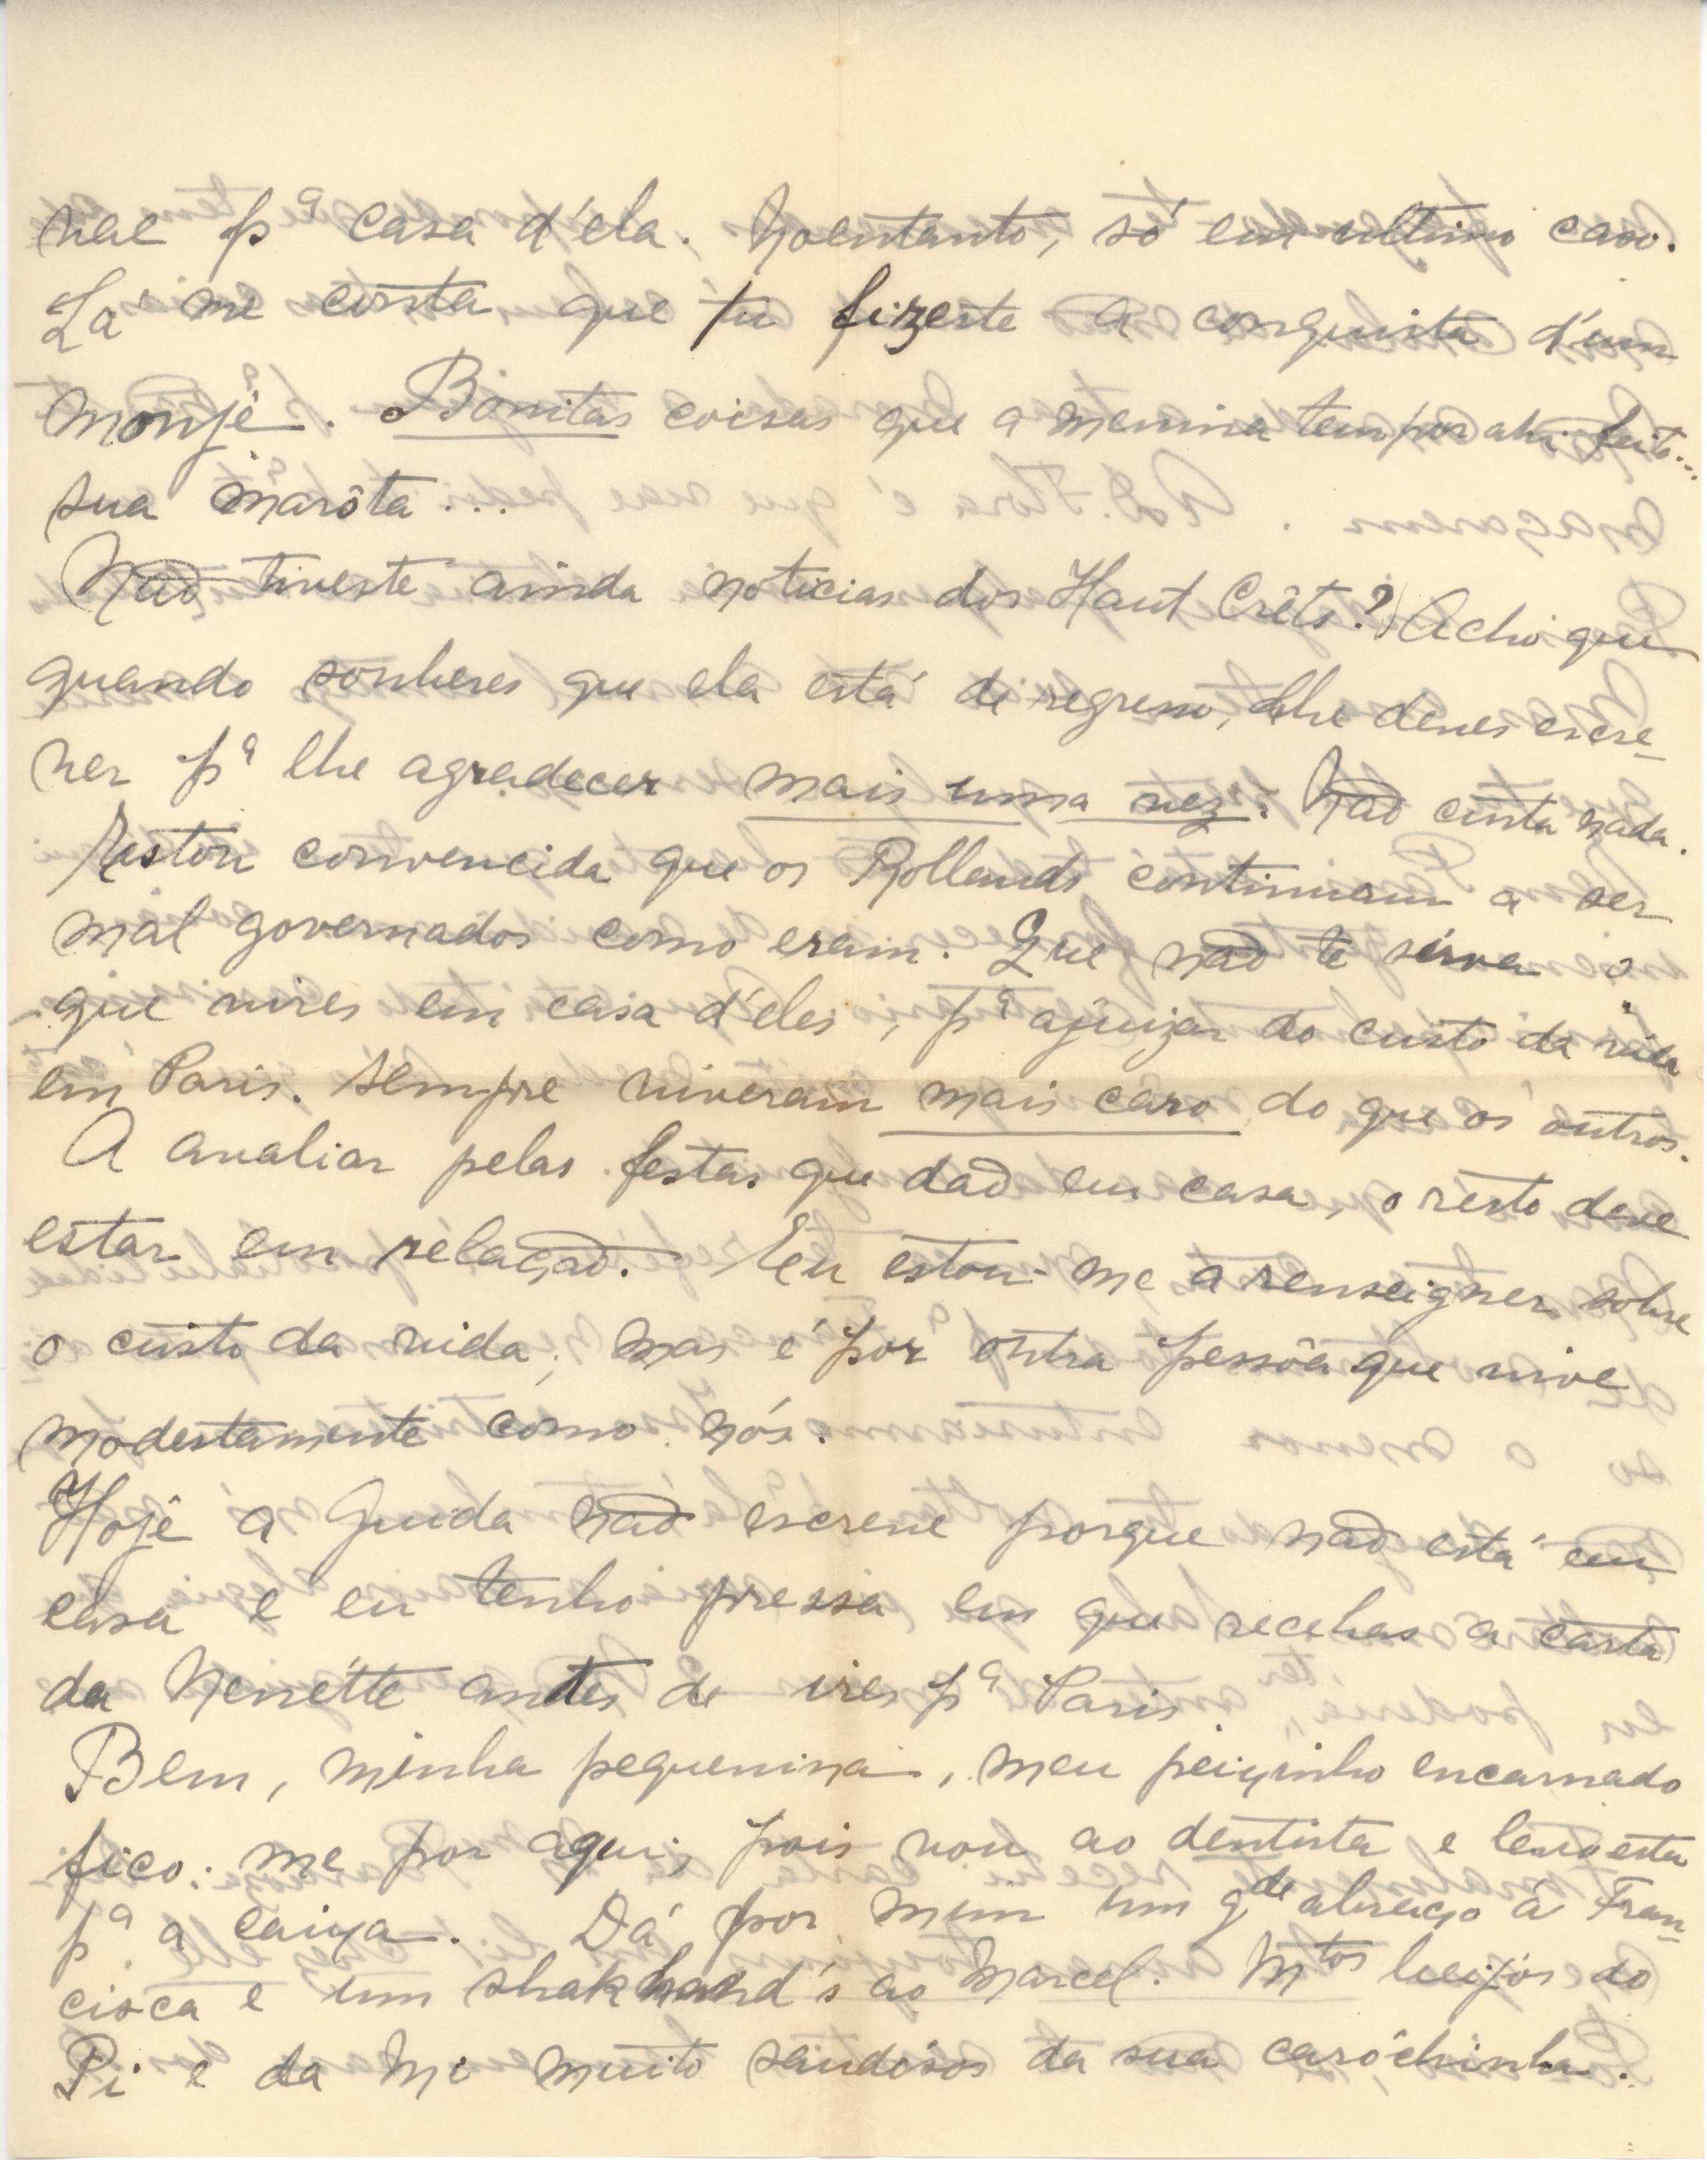 vae pª casa d'ela. Noentanto, só em ultimo caso.
Lá me consta que tu fizeste a conquista d'um
monje. Bonitas coisas que a menina tem por ahi feito...
sua marôta...
Não tiveste ainda noticias dos Haut Crêts? Acho que
quando souberes que ela está de regresso, lhe deves escre-
ver pª lhe agradecer mais uma vez. Não custa nada.
Estou convencida que os Rollands continuam a ser
mal governados como eram. Que não te sirva o
que vires em casa d'eles, pª ajuizar do custo da vida
em Paris. Sempre viveram mais caro do que os outros.
A avaliar pelas festas que dão em casa, o resto deve
estar em relação. Eu estou-me a renseigner sobre
o custo da vida, mas é por outra pessôa que vive
modestamente como nós.
Hoje a Guida não escreve porque não está em
casa e eu tenho pressa em que recebas a carta
da Nenétte antes de ires pª Paris.
Bem, minha pequenina, meu peixinho encarnado
fico-me por aqui, pois vou ao dentista e levo esta
pª a caixa. Dá por mim um gde abraço á Fran-
cisca e um shakhand's ao Marcel. Mtos beijos do
Pi e da Mi muito saudosos da sua caróchinha.